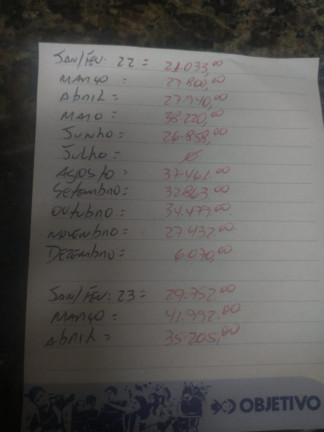 Jan/Fev. 22 = 21.033,00
Março = 27.800,00
Abril = 27.940,00
Maio = 38.220,00
Junho = 26.858,00
Julho = ø
Agosto = 37.461,00
Setembro = 32.863,00
Outubro = 34.479,00
Novembro = 27.432,00
Dezembro = 6.070,00
Jan/Fev. 23 = 29.752,00
Março = 41.992,00
Abril = 35.205,00
OBJETIVO